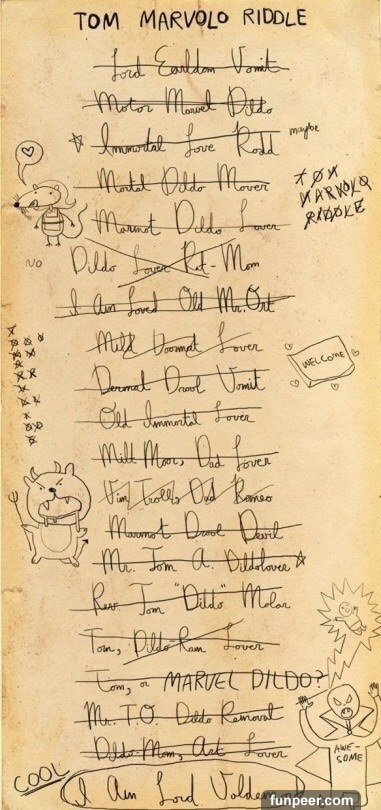 TOM MARVOLO RIDDLE
Lord Earldom Vomit
Motor Marvel Dildo
Immortal Love Rodd maybe
Mortal Dildo Mover
TOM
MARVOLO
RIDDLE
Marmot Dildo Lover
NO
Dildo Lover Rat-Mom
I Am Loved Old Mr. Ort
Mild Doormat Lover
WELCOME
Dermal Drool Vomit
Old Immortal Lover
Milt Moor, Dad Lover
Vim Troll, Dad Romeo
Marmot Drool Devil
Mr. Tom A. Dildolover
Rev Tom "Dildo" Molar
Tom, Dildo-Ram Lover
Tom, or MARVEL DILDO?
Mr. T.O. Dildo Removal
Dildo-Mom, Art Lover
AWE-
SOME
COOL
I Am Lord Voldemort
funpeer.com